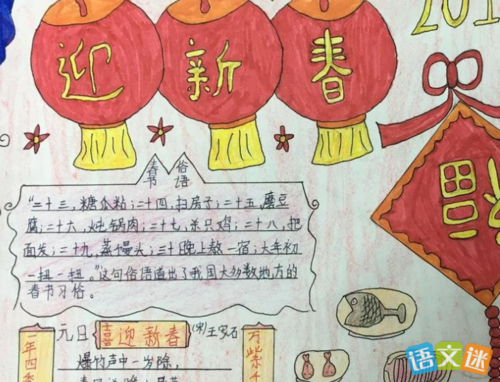 迎新春
201
福
春节
俗语
"二十三,糖瓜粘;二十四,扫房子;二十五,磨豆
腐;二十六,炖锅肉;二十七,杀只鸡;二十八,把
面发;二十九,蒸馒头;三十晚上熬一宿;大年初
一扭一扭。"这句俗语道出了我国大多数地方的
春节习俗。
元日 喜迎新春 (宋)王安石
爆竹声中一岁除,
一年四
万紫千
语文迷